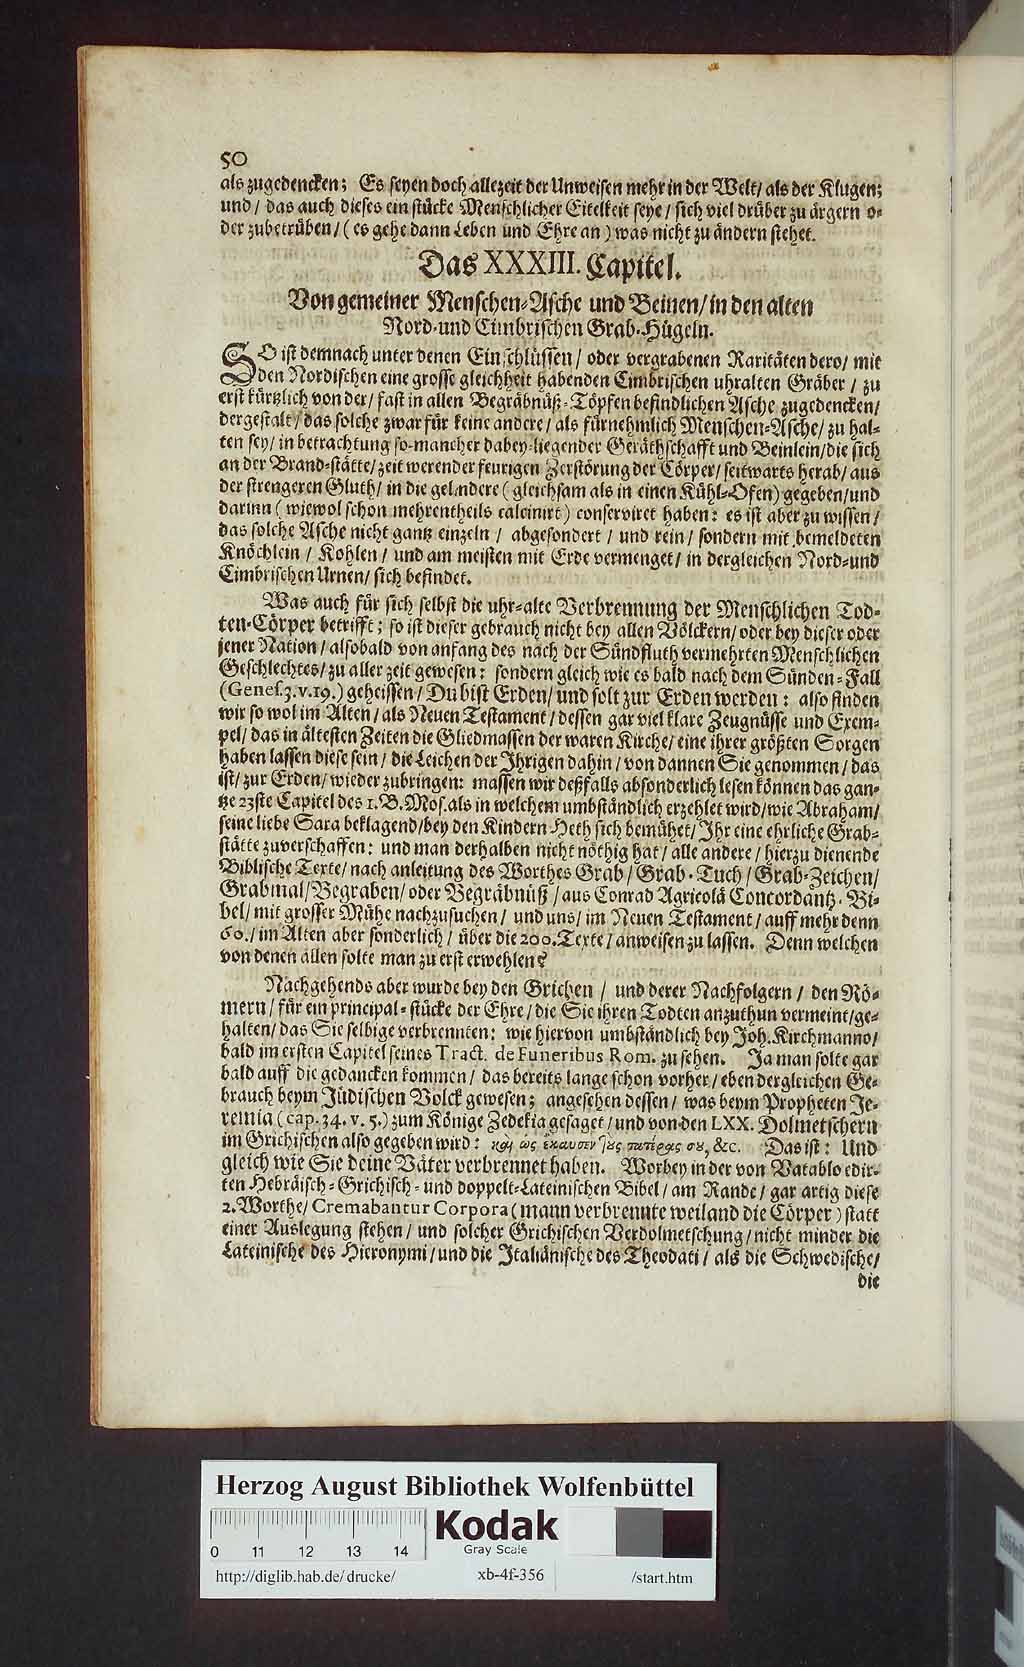 50
als zugedencken; Es seyen doch allezeit der Unweisen mehr in der Welt/ als der Klugen;
und/ das auch dieses ein stücke Menschlicher Eitelkeit seye/ sich viel drüber zu ärgern o-
der zubetrüben/ ( es gehe dann Leben und Ehre an ) was nicht zu ändern stehet.
Das XXXIII. Capitel.
Von gemeiner Menschen-Asche und Beinen/ in den alten
Nord-und Cimbrischen Grab-Hügeln.
SO ist demnach unter denen Einschlüssen/ oder vergrabenen Raritäten dero/ mit
den Nordischen eine grosse gleichheit habenden Cimbrischen uhralten Gräber / zu
erst kürtzlich von der/ fast in allen Begräbnüß-Töpfen befindlichen Asche zugedencken/
dergestalt/ das solche zwar für keine andere/ als fürnehmlich Menschen-Asche/ zu hal-
ten sey/ in betrachtung so-mancher dabey-liegender Geräthschafft und Beinlein/ die sich
an der Brand-stätte/ zeit werender feurigen Zerstörung der Cörper/ seitwarts herab/ aus
der strengeren Gluth/ in die gelindere ( gleichsam als in einen Kühl-Ofen) gegeben/ und
darinn ( wiewol schon mehrentheils calcinirt ) conserviret haben: es ist aber zu wissen/
das solche Asche nicht gantz einzeln / abgesondert / und rein/ sondern mit bemeldeten
Knöchlein / Kohlen/ und am meisten mit Erde vermenget/ in dergleichen Nord-und
Cimbrischen Urnen/ sich befindet.
Was auch für sich selbst die uhr-alte Verbrennung der Menschlichen Tod-
ten-Cörper betrifft; so ist dieser gebrauch nicht bey allen Völckern/ oder bey dieser oder
jener Nation/ alsobald von anfang des nach der Sündfluth vermehrten Menschlichen
Geschlechtes/ zu aller zeit gewesen: sondern gleich wie es bald nach dem Sünden-Fall
(Genes. 3. v. 19.) geheissen/ Du bist Erden/ und solt zur Erden werden: also finden
wir so wol im Alten/ als Neuen Testament/ dessen gar viel klare Zeugnüsse und Exem-
pel/ das in ältesten Zeiten die Gliedmassen der waren Kirche/ eine ihrer größten Sorgen
haben lassen diese sein/ die Leichen der Ihrigen dahin/ von dannen Sie genommen/ das
ist/ zur Erden/ wieder zubringen: massen wir deßfalls absonderlich lesen können das gan-
tze 23ste Capitel des 1. B. Mos. als in welchem umbständlich erzehlet wird/ wie Abraham/
seine liebe Sara beklagend/ bey den Kindern Heth sich bemühet/ Ihr eine ehrliche Grab-
stätte zuverschaffen: und man derhalben nicht nöthig hat/ alle andere/ hierzu dienende
Biblische Texte/ nach anleitung des Worthes Grab/ Grab-Tuch/ Grab-Zeichen/
Grabmal/ Begraben/ oder Begräbnüß/ aus Conrad Agricolä Concordäntz-Bi-
bel/ mit grosser Mühe nachzusuchen/ und uns/ im Neuen Testament/ auff mehr denn
60./ im Alten aber sonderlich/ über die 200. Texte/ anweisen zu lassen. Denn welchen
von denen allen solte man zu erst erwehlen?
Nachgehends aber wurde bey den Grichen / und derer Nachfolgern / den Rö-
mern/ für ein principal-stücke der Ehre/ die Sie ihren Todten anzuthun vermeint/ ge-
halten/ das Sie selbige verbrennten: wie hiervon umbständlich bey Joh. Kirchmanno/
bald im ersten Capitel seines Tract. de Funeribus Rom. zu sehen. Ja man solte gar
bald auff die gedancken kommen/ das bereits lange schon vorher/ eben dergleichen Ge-
brauch beym Jüdischen Volck gewesen; angesehen dessen/ was beym Propheten Je-
remia ( cap. 34. v. 5. ) zum Könige Zedekia gesaget/ und von den LXX. Dolmetschern
im Grichischen also gegeben wird: καὶ ὡς ἔκαυσεν τοὺς πατέρας σου, &c. Das ist: Und
gleich wie Sie deine Väter verbrennet haben. Worbey in der von Vatablo edir-
ten Hebräisch-Grichisch-und doppelt-Lateinischen Bibel/ am Rande/ gar artig diese
2. Worthe/ Cremabantur Corpora ( mann verbrennte weiland die Cörper ) statt
einer Auslegung stehen/ und solcher Grichischen Verdolmetschung/ nicht minder die
Lateinische des Hieronymi/ und die Italiänische des Theodati/ als die Schwedische/
die
Herzog August Bibliothek Wolfenbüttel
0 11 12 13 14
Kodak
Gray Scale
http://diglib.hab.de/drucke/ xb-4f-356 /start.htm